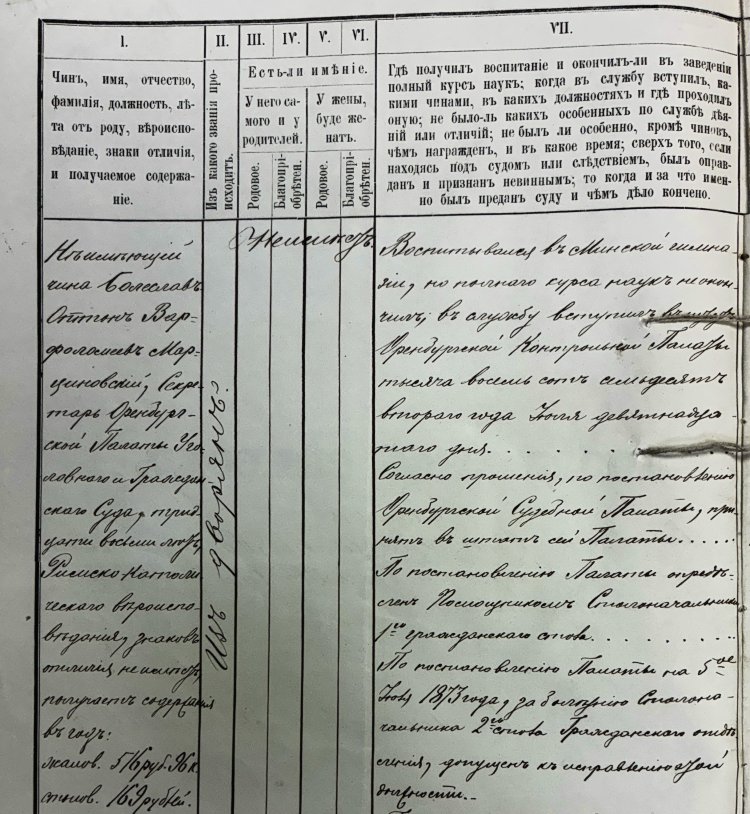 I.
Чинъ, имя, отчество,
фамилія, должность, лѣ-
та отъ роду, вѣроиспо-
вѣданіе, знаки отличія,
и получаемое содержа-
ніе.
II.
Изъ какого званія про-
исходитъ.
III. IV. V. VI.
Есть-ли имѣніе.
У него са-
мого и у
родителей.
У жены,
буде же-
натъ.
Родовое.
Благопрі-
обрѣтен.
Родовое.
Благопрі-
обрѣтен.
VII.
Гдѣ получилъ воспитаніе и окончилъ-ли въ заведеніи
полный курсъ наукъ; когда въ службу вступилъ, ка-
кими чинами, въ какихъ должностяхъ и гдѣ проходилъ
оную; не было-ль какихъ особенныхъ по службѣ дѣя-
ній или отличій; не былъ ли особенно, кромѣ чиновъ,
чѣмъ награжденъ, и въ какое время; сверхъ того, если
находясь подъ судомъ или слѣдствіемъ, былъ оправ-
данъ и признанъ невиннымъ; то когда и за что имен-
но былъ преданъ суду и чѣмъ дѣло кончено.
Неимѣющій
чина Болеславъ
Оттонъ Вар-
фоломеевъ Мар-
циновскій, Секре-
тарь Оренбург-
ской Палаты Уго-
ловнаго и Граждан-
скаго Суда, трид-
цати восьми лѣтъ,
Римско Католи-
ческаго вѣроиспо-
вѣданія, знаковъ
отличія не имѣетъ,
получаетъ содержанія
въ годъ:
жалов. 516 руб. 96 к.
столов. 169 рублей.
Изъ дворянъ.
Неимѣетъ.
Воспитывался въ Минской гимна-
зіи, но полнаго курса наукъ не окон-
чилъ; въ службу вступилъ въ
Оренбургской Контрольной Палаты
тысяча восемь сотъ семьдесятъ
втораго года Іюля девятнадца-
таго дня.......
Согласно прошенія, по постановленію
Оренбургской Судебной Палаты, при-
нятъ въ штатъ сей Палаты.....
По постановленію Палаты опредѣ-
ленъ Помощникомъ Столоначальника
1го гражданскаго стола.........
По постановленію Палаты на 5ое
1873 года, за болѣзнію Столона-
чальника 2го стола Гражданскаго отдѣ-
ленія, допущенъ къ исправленію этой
должности...